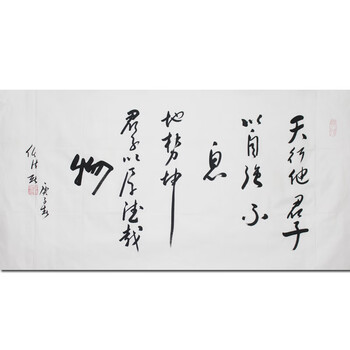 天行健君子
以自强不
息
地势坤
君子以厚德载
物
任法融